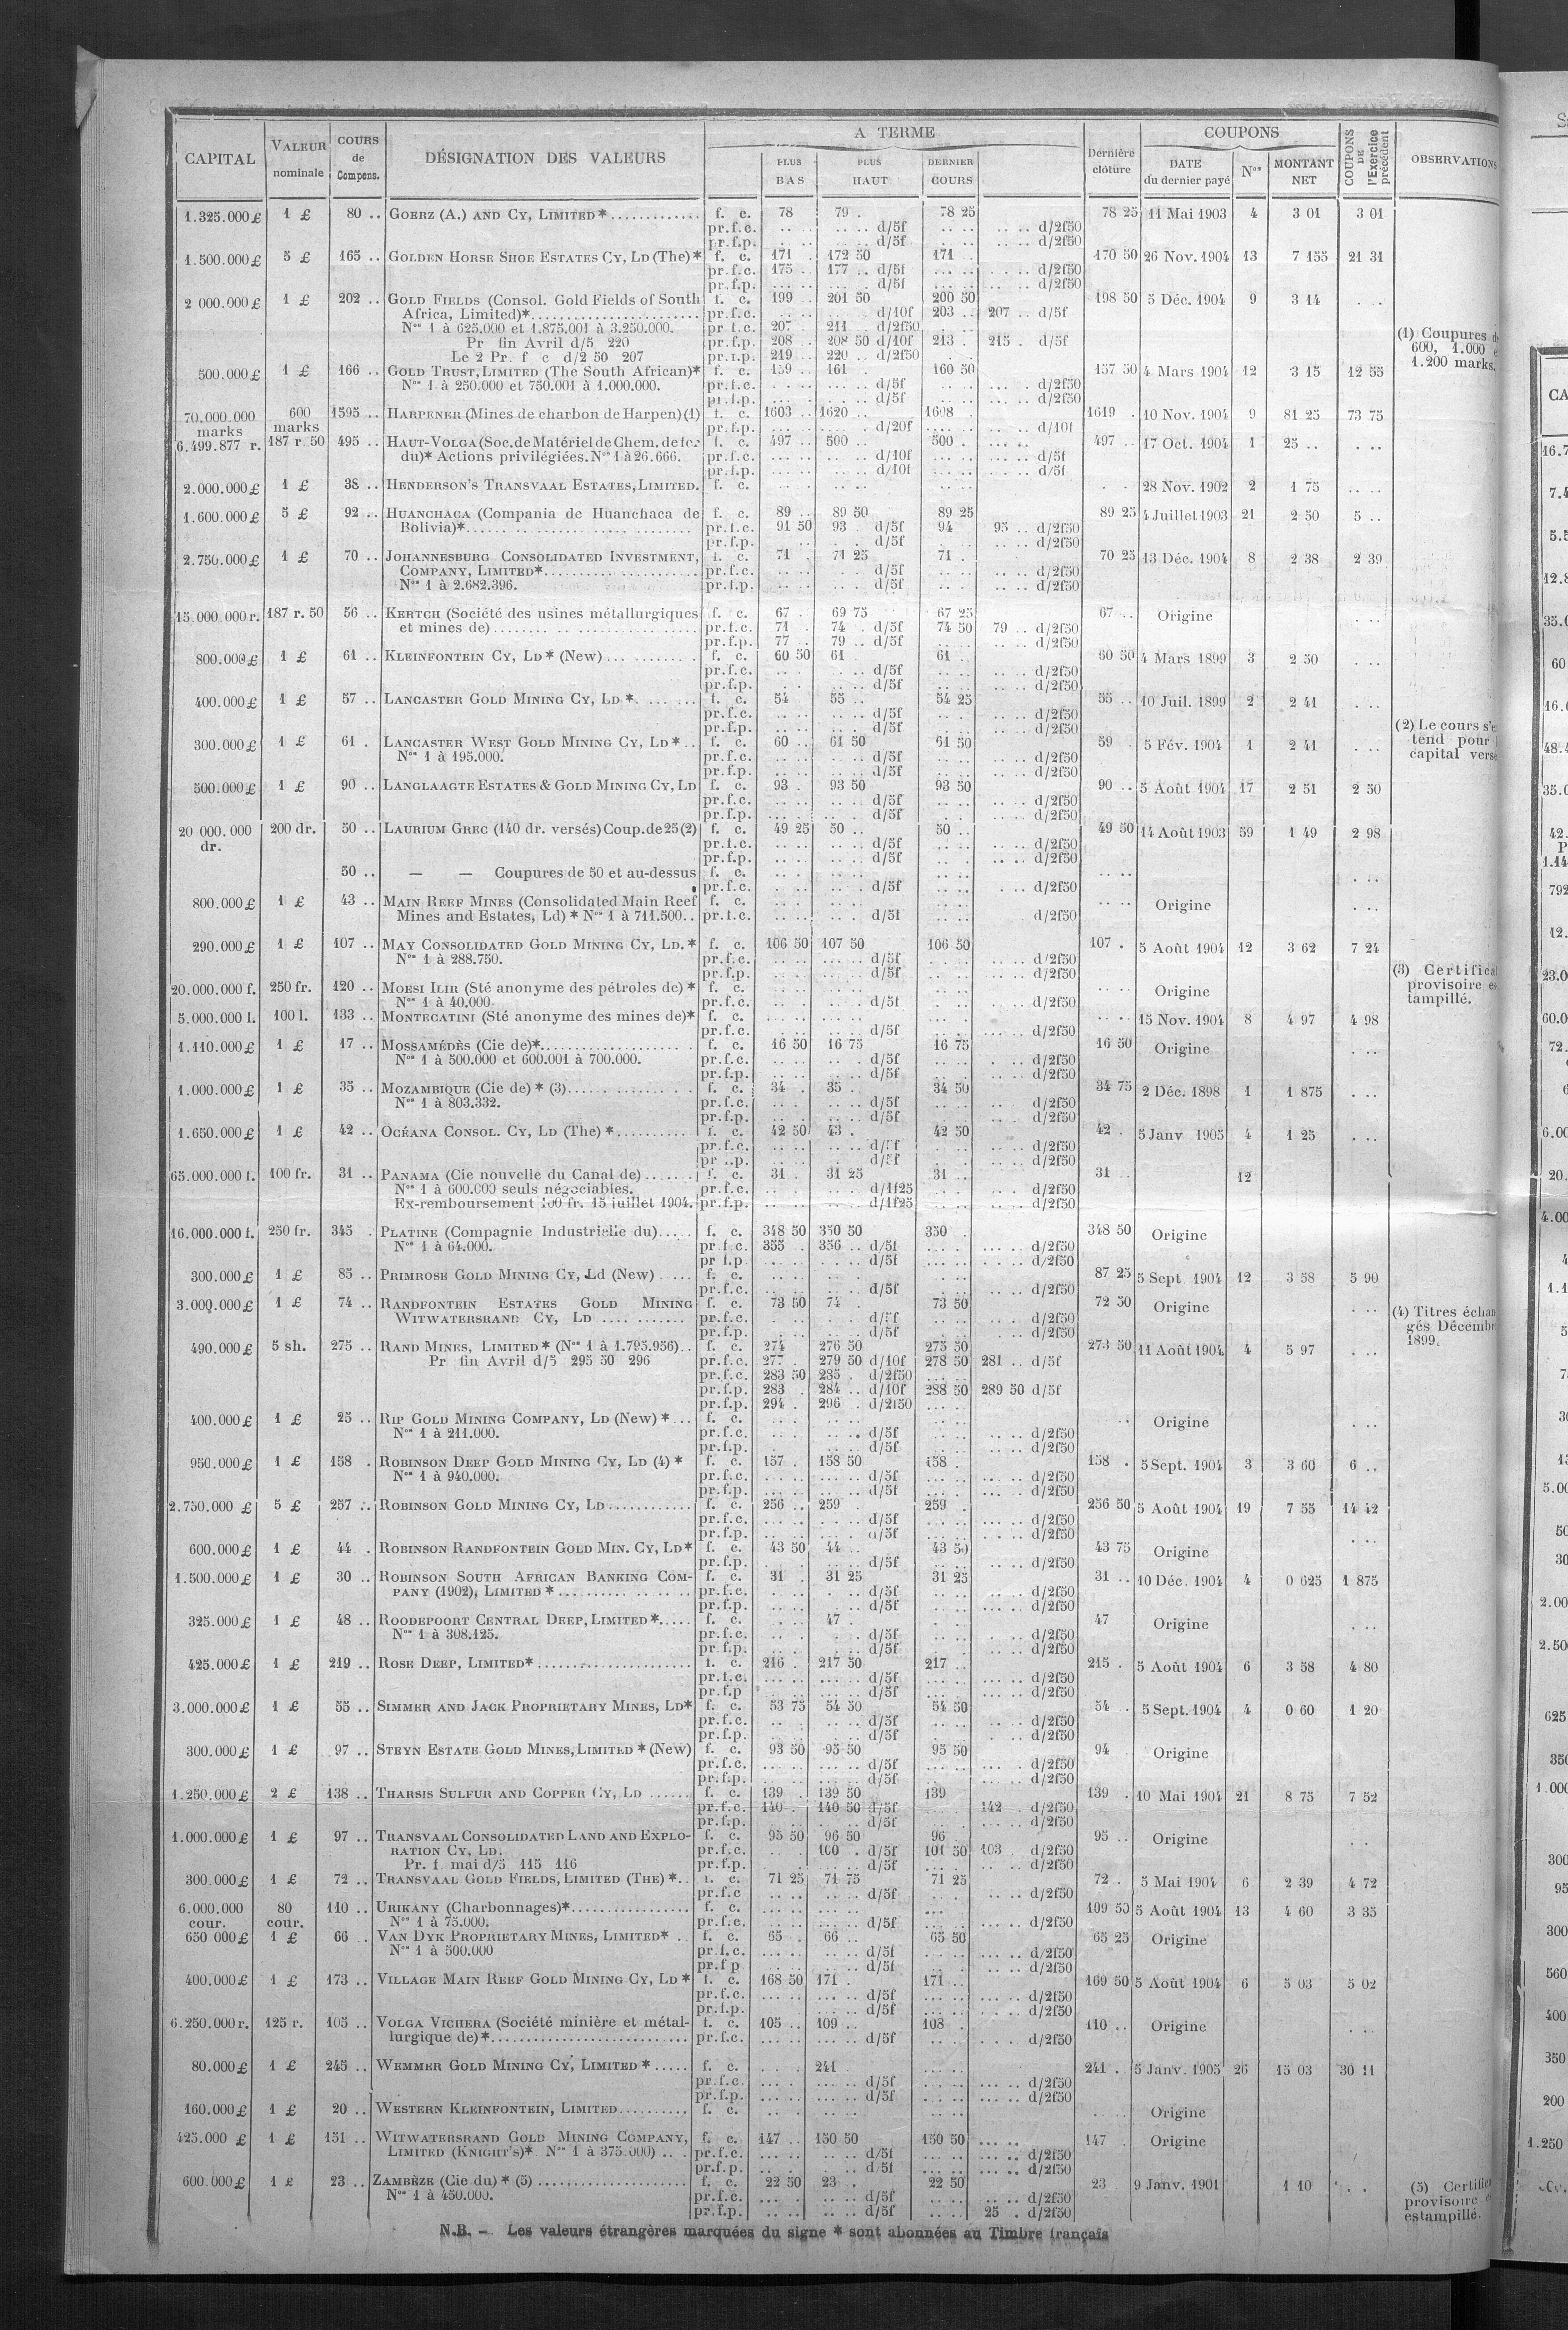 CAPITAL | VALEUR nominale | COURS de Compens. | DÉSIGNATION DES VALEURS | A TERME | PLUS BAS | PLUS HAUT | DERNIER COURS | Dernière clôture | COUPONS | DATE du dernier payé | Nos | MONTANT NET | COUPONS DE l'Exercice précédent | OBSERVATIONS
1.325.000£ 1 £ 80 .. GOERZ (A.) AND CY, LIMITED* f. c. 78 79 . 78 25 78 25 11 Mai 1903 4 3 01 3 01
pr.f.c. d/5f d/2f50
pr.f.p. d/5f d/2f50
1.500.000£ 5 £ 165 .. GOLDEN HORSE SHOE ESTATES CY, LD (The)* f. c. 171 172 50 171 170 50 26 Nov. 1904 13 7 155 21 31
pr.f.c. 175 .. 177 .. d/5f d/2f50
pr.f.p. d/5f d/2f50
2 000.000£ 1 £ 202 .. GOLD FIELDS (Consol. Gold Fields of South f. c. 199 201 50 200 50 198 50 5 Déc. 1904 9 3 14
Africa, Limited)* pr.f.c. d/10f 203 .. 207 .. d/5f
Nos 1 à 625.000 et 1.875.001 à 3.250.000. pr.f.c. 207 211 d/2f50
Pr fin Avril d/5 220 pr.f.p. 208 .. 208 50 d/10f 213 . 215 . d/5f
Le 2 Pr. f c d/2 50 207 pr.f.p. 219 .. 220 .. d/2f50
500.000£ 1 £ 166 .. GOLD TRUST, LIMITED (The South African)* f. c. 159 161 160 50 157 50 4 Mars 1904 12 3 15 12 55
Nos 1 à 250.000 et 750.001 à 1.000.000. pr.f.c. d/5f d/2f50
pr.f.p. d/5f d/2f50
70.000.000 marks 600 marks 1595 .. HARPENER (Mines de charbon de Harpen) (1) f. c. 1603 .. 1620 .. 1608 1619 . 10 Nov. 1904 9 81 25 73 75
pr.f.p. d/20f d/10f
6.499.877 r. 187 r. 50 495 .. HAUT-VOLGA (Soc. de Matériel de Chem. de fer f. c. 497 .. 500 .. 500 . 497 .. 17 Oct. 1904 1 25 ..
du)* Actions privilégiées. Nos 1 à 26.666. pr.f.c. d/10f d/5f
pr.f.p. d/10f d/5f
2.000.000£ 1 £ 38 .. HENDERSON'S TRANSVAAL ESTATES, LIMITED. f. c. 28 Nov. 1902 2 1 75
1.600.000£ 5 £ 92 .. HUANCHACA (Compania de Huanchaca de f. c. 89 .. 89 50 89 25 89 25 4 Juillet 1903 21 2 50 5 ..
Bolivia)* pr.f.c. 91 50 93 d/5f 94 95 .. d/2f50
pr.f.p. d/5f d/2f50
2.750.000£ 1 £ 70 .. JOHANNESBURG CONSOLIDATED INVESTMENT, f. c. 71 71 25 71 . 70 25 13 Déc. 1904 8 2 38 2 39
COMPANY, LIMITED* pr.f.c. d/5f d/2f50
Nos 1 à 2.682.396. pr.f.p. d/5f d/2f50
15.000.000 r. 187 r. 50 56 .. KERTCH (Société des usines métallurgiques f. c. 67 . 69 75 67 25 67 .. Origine
et mines de) pr.f.c. 71 . 74 . d/5f 74 50 79 .. d/2f50
pr.f.p. 77 . 79 .. d/5f d/2f50
800.000£ 1 £ 61 .. KLEINFONTEIN CY, LD* (New) f. c. 60 50 61 61 . 60 50 4 Mars 1899 3 2 50
pr.f.c. d/5f d/2f50
pr.f.p. d/5f d/2f50
400.000£ 1 £ 57 .. LANCASTER GOLD MINING CY, LD * f. c. 54 55 .. 54 25 55 .. 10 Juil. 1899 2 2 41
pr.f.c. d/5f d/2f50
pr.f.p. d/5f d/2f50
300.000£ 1 £ 61 . LANCASTER WEST GOLD MINING CY, LD* f. c. 60 .. 61 50 61 50 59 . 5 Fév. 1904 1 2 41
Nos 1 à 195.000. pr.f.c. d/5f d/2f50
pr.f.p. d/5f d/2f50
500.000£ 1 £ 90 .. LANGLAAGTE ESTATES & GOLD MINING CY, LD f. c. 93 . 93 50 93 50 90 .. 5 Août 1904 17 2 51 2 50
pr.f.c. d/5f d/2f50
pr.f.p. d/5f d/2f50
20 000.000 dr. 200 dr. 50 .. LAURIUM GREC (140 dr. versés) Coup. de 25 (2) f. c. 49 25 50 .. 50 .. 49 50 14 Août 1903 59 1 49 2 98
pr.f.c. d/5f d/2f50
pr.f.p. d/5f d/2f50
50 .. — — Coupures de 50 et au-dessus f. c.
pr.f.c. d/5f d/2f50
800.000£ 1 £ 43 .. MAIN REEF MINES (Consolidated Main Reef f. c. Origine
Mines and Estates, Ld) * Nos 1 à 711.500.. pr.f.c. d/5f d/2f50
290.000£ 1 £ 107 .. MAY CONSOLIDATED GOLD MINING CY, LD.* f. c. 106 50 107 50 106 50 107 . 5 Août 1904 12 3 62 7 24
Nos 1 à 288.750. pr.f.c. d/5f d/2f50
pr.f.p. d/5f d/2f50
20.000.000 f. 250 fr. 120 .. MOESI ILIR (Sté anonyme des pétroles de) * f. c. Origine
Nos 1 à 40.000. pr.f.c. d/5f d/2f50
5.000.000 l. 100 l. 133 .. MONTECATINI (Sté anonyme des mines de)* f. c. 15 Nov. 1904 8 4 97 4 98
pr.f.c. d/5f d/2f50
1.110.000£ 1 £ 17 .. MOSSAMÉDÈS (Cie de)* f. c. 16 50 16 75 16 75 16 50 Origine
Nos 1 à 500.000 et 600.001 à 700.000. pr.f.c. d/5f d/2f50
pr.f.p. d/5f d/2f50
1.000.000£ 1 £ 35 .. MOZAMBIQUE (Cie de) * (3) f. c. 34 . 35 . 34 50 34 75 2 Déc. 1898 1 1 875
Nos 1 à 803.332. pr.f.c. d/5f d/2f50
pr.f.p. d/5f d/2f50
1.650.000£ 1 £ 42 .. OCÉANA CONSOL. CY, LD (The) * f. c. 42 50 43 . 42 50 42 . 5 Janv 1905 4 1 25
pr.f.c. d/5f d/2f50
d/5f d/2f50
65.000.000 f. 100 fr. 31 .. PANAMA (Cie nouvelle du Canal de) f. c. 31 . 31 25 31 .. 31 .. 12
Nos 1 à 600.000 seuls négociables. pr.f.c. d/1f25 d/2f50
Ex-remboursement 100 fr. 15 juillet 1904. pr.f.p. d/1f25 d/2f50
16.000.000 f. 250 fr. 345 . PLATINE (Compagnie Industrielle du) f. c. 348 50 350 50 350 . 348 50 Origine
Nos 1 à 64.000. pr f.c. 355 .. 356 .. d/5f d/2f50
pr f.p d/5f d/2f50
300.000£ 1 £ 85 .. PRIMROSE GOLD MINING CY, Ld (New) f. c. 87 25 5 Sept 1904 12 3 58 5 90
pr.f.c. d/5f d/2f50
3.000.000£ 1 £ 74 .. RANDFONTEIN ESTATES GOLD MINING f. c. 73 50 74 . 73 50 72 50 Origine
WITWATERSRAND CY, LD pr.f.c. d/5f d/2f50
pr.f.p. d/5f d/2f50
490.000£ 5 sh. 275 .. RAND MINES, LIMITED* (Nos 1 à 1.795.956) f. c. 274 276 50 275 50 273 50 11 Août 1904 4 5 97
Pr fin Avril d/5 295 50 296 pr.f.c. 277 . 279 50 d/10f 278 50 281 .. d/5f
pr.f.c. 283 50 285 . d/2f50
pr.f.p. 283 . 284 .. d/10f 288 50 289 50 d/5f
pr.f.p. 294 . 296 . d/2f50
400.000£ 1 £ 25 .. RIP GOLD MINING COMPANY, LD (New) * f. c. Origine
Nos 1 à 211.000. pr.f.c. d/5f d/2f50
pr.f.p. d/5f d/2f50
950.000£ 1 £ 158 . ROBINSON DEEP GOLD MINING CY, LD (4) * f. c. 157 . 158 50 158 . 158 . 5 Sept. 1904 3 3 60 6 ..
Nos 1 à 940.000. pr.f.c. d/5f d/2f50
pr.f.p. d/5f d/2f50
2.750.000 £ 5 £ 257 .. ROBINSON GOLD MINING CY, LD f. c. 256 .. 259 259 . 256 50 5 Août 1904 19 7 55 14 42
pr.f.c. d/5f d/2f50
pr.f.p. d/5f d/2f50
600.000£ 1 £ 44 . ROBINSON RANDFONTEIN GOLD MIN. CY, LD* f. c. 43 50 44 .. 43 50 43 75 Origine
pr.f.p. d/5f d/2f50
1.500.000£ 1 £ 30 .. ROBINSON SOUTH AFRICAN BANKING COM- f. c. 31 . 31 25 31 25 31 .. 10 Déc. 1904 4 0 625 1 875
PANY (1902), LIMITED * pr.f.c. d/5f d/2f50
pr.f.p. d/5f d/2f50
325.000£ 1 £ 48 .. ROODEPOORT CENTRAL DEEP, LIMITED* f. c. 47 . 47 Origine
Nos 1 à 308.125. pr.f.c. d/5f d/2f50
pr.f.p. d/5f d/2f50
425.000£ 1 £ 219 .. ROSE DEEP, LIMITED* f. c. 216 . 217 50 217 .. 215 . 5 Août 1904 6 3 58 4 80
pr.f.c. d/5f d/2f50
pr.f.p d/5f d/2f50
3.000.000£ 1 £ 55 .. SIMMER AND JACK PROPRIETARY MINES, LD* f. c. 53 75 54 50 54 50 54 .. 5 Sept. 1904 4 0 60 1 20
pr.f.c. d/5f d/2f50
pr.f.p. d/5f d/2f50
300.000£ 1 £ 97 .. STEYN ESTATE GOLD MINES, LIMITED * (New) f. c. 93 50 95 50 95 50 94 Origine
pr.f.c. d/5f d/2f50
pr.f.p. d/5f d/2f50
1.250.000£ 2 £ 138 .. THARSIS SULFUR AND COPPER CY, LD f. c. 139 . 139 50 139 139 . 10 Mai 1904 21 8 75 7 52
pr.f.c. 140 . 140 50 d/5f 142 . d/2f50
pr.f.p. d/5f d/2f50
1.000.000£ 1 £ 97 .. TRANSVAAL CONSOLIDATED LAND AND EXPLO- f. c. 95 50 96 50 96 95 .. Origine
RATION CY, LD. pr.f.c. 100 . d/5f 101 50 103 d/2f50
Pr. f. mai d/5 115 116 pr.f.p. d/5f d/2f50
300.000£ 1 £ 72 .. TRANSVAAL GOLD FIELDS, LIMITED (THE) * f. c. 71 25 71 75 71 25 72 . 5 Mai 1904 6 2 39 4 72
pr.f.c d/5f d/2f50
6.000.000 cour. 80 cour. 110 .. URIKANY (Charbonnages)* f. c. 109 50 5 Août 1904 13 4 60 3 35
Nos 1 à 75.000. pr.f.c. d/5f d/2f50
650 000£ 1 £ 66 . VAN DYK PROPRIETARY MINES, LIMITED* f. c. 65 . 66 .. 65 50 65 25 Origine
Nos 1 à 500.000 pr.f.c. d/5f d/2f50
pr.f p d/5f d/2f50
400.000£ 1 £ 173 .. VILLAGE MAIN REEF GOLD MINING CY, LD * f. c. 168 50 171 . 171 .. 169 50 5 Août 1904 6 5 03 5 02
pr.f.c. d/5f d/2f50
pr.f.p. d/5f d/2f50
6.250.000 r. 125 r. 105 .. VOLGA VICHERA (Société minière et métal- f. c. 105 .. 109 .. 108 . 110 .. Origine
lurgique de)* pr.f.c. d/5f d/2f50
80.000£ 1 £ 245 .. WEMMER GOLD MINING CY, LIMITED * f. c. 241 241 .. 5 Janv. 1905 26 15 03 30 11
pr.f.c. d/5f d/2f50
pr.f.p. d/5f d/2f50
160.000£ 1 £ 20 .. WESTERN KLEINFONTEIN, LIMITED f. c. Origine
425.000 £ 1 £ 151 .. WITWATERSRAND GOLD MINING COMPANY, f. c. 147 .. 150 50 150 50 147 . Origine
LIMITED (KNIGHT'S)* Nos 1 à 375.000) pr.f.c. d/5f d/2f50
pr.f.p. d/5f d/2f50
600.000£ 1 £ 23 .. ZAMBÈZE (Cie du) * (5) f. c. 22 50 23 . 22 50 23 9 Janv. 1901 1 10
Nos 1 à 450.000. pr.f.c. d/5f d/2f50
pr.f.p. d/5f 25 . d/2f50
(1) Coupures
600, 1.000
1.200 marks.
(2) Le cours
tend pour
capital
(3)
provisoire
tampillé.
(4) Titres
gés
1899.
(5)
provisoire
estampillé.
N.B. — Les valeurs étrangères marquées du signe * sont abonnées au Timbre français